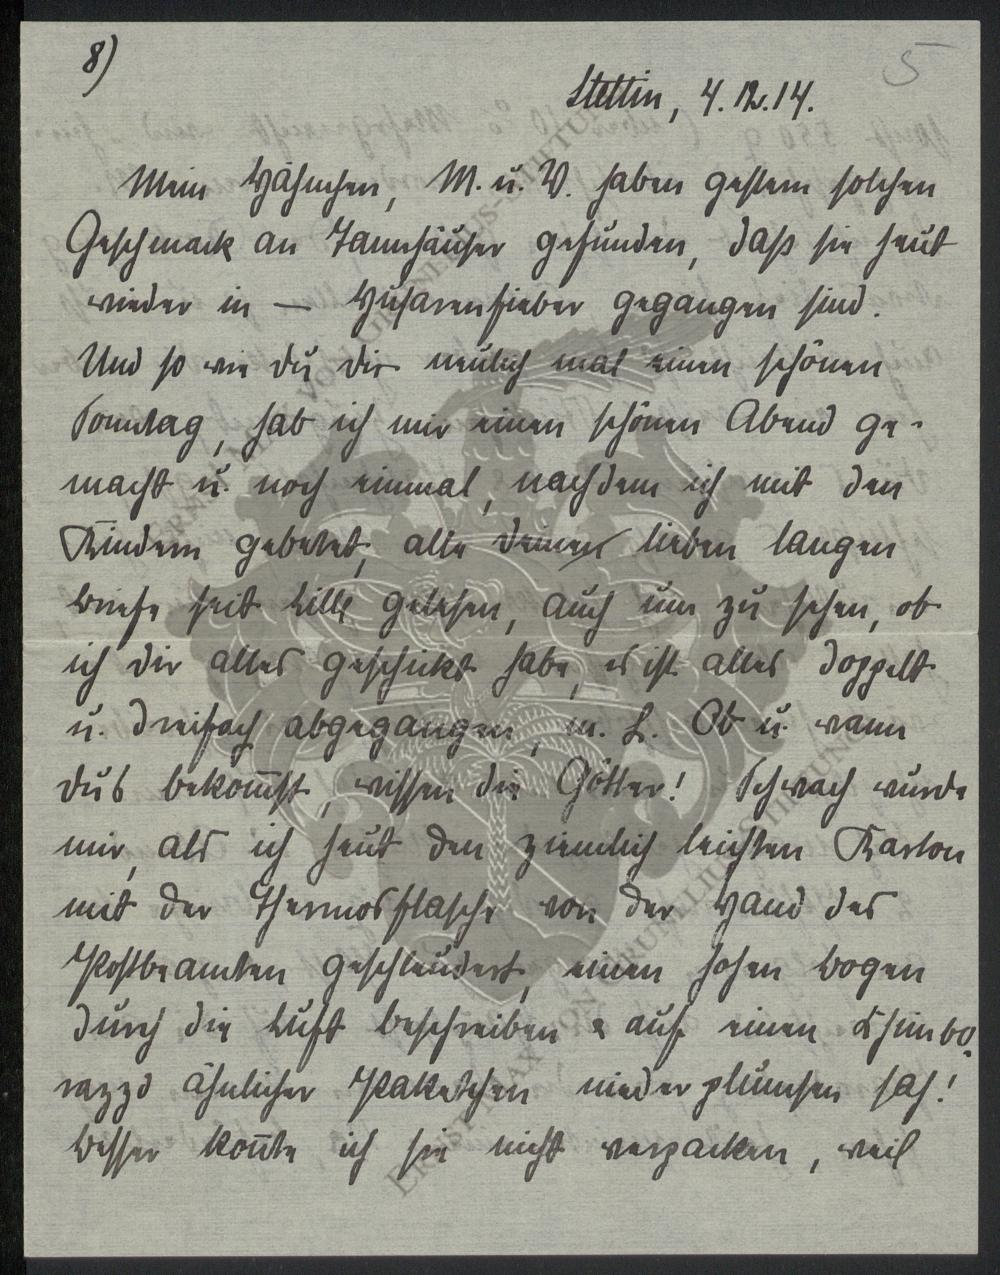 8)
5
Stettin, 4.12.14.
Mein Hähnchen, M. u. V. haben gestern solchen
Geschmack an Tannhäuser gefunden, daß sie heut
wieder in — Husarenfieber gegangen sind.
Und so wie du dir neulich mal einen schönen
Sonntag, hab ich mir einen schönen Abend ge-
macht u. noch einmal, nachdem ich mit den
Kindern gebetet, alle deinen lieben langen
Briefe seit Lille gelesen, auch um zu sehen, ob
ich dir alles geschickt habe, es ist alles doppelt
u. dreifach abgegangen, m. L. Ob u. wann
du's bekom̄st, wissen die Götter! Schwach wurde
mir, als ich heut den ziemlich leichten Karton
mit der Thermosflasche von der Hand des
Postbeamten geschleudert, einen hohen Bogen
durch die Luft beschreiben & auf einen Chimbo-
razzo ähnlicher Paketchen niederplumsen sah!
Besser kon̄te ich sie nicht verpacken, weil